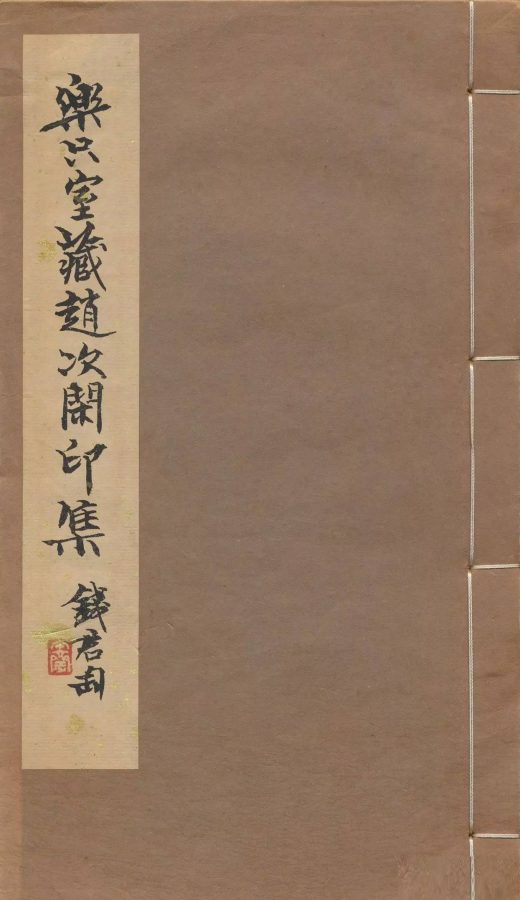 樂只室藏趙次閑印集
錢君匋